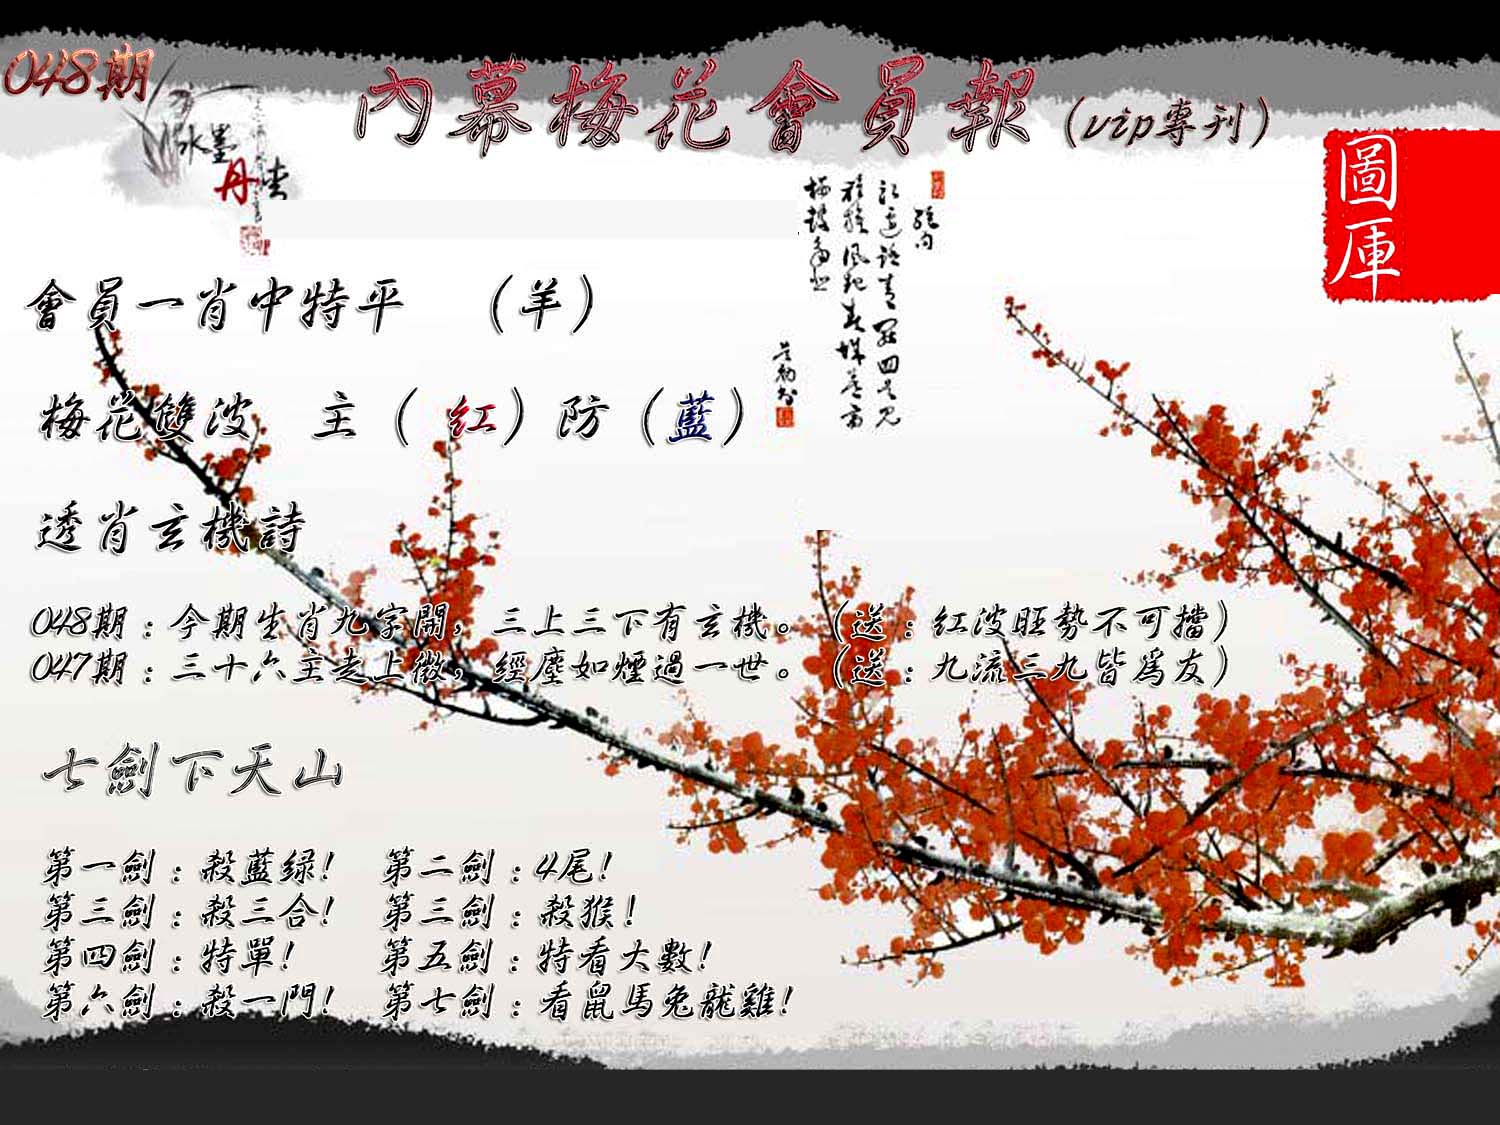 048期
內幕梅花會員報（vip專刊）
水墨
丹
圖庫
會員一肖中特平 （羊）
梅花雙波 主（紅）防（藍）
透肖玄機詩
048期：今期生肖九字開，三上三下有玄機。（送：紅波旺勢不可擋）
047期：三十六主走上微，經塵如煙過一世。（送：九流三九皆為友）
七劍下天山
第一劍：殺藍绿！ 第二劍：4尾！
第三劍：殺三合！ 第三劍：殺猴！
第四劍：特單！ 第五劍：特看大數！
第六劍：殺一門！ 第七劍：看鼠馬兔龍雞！